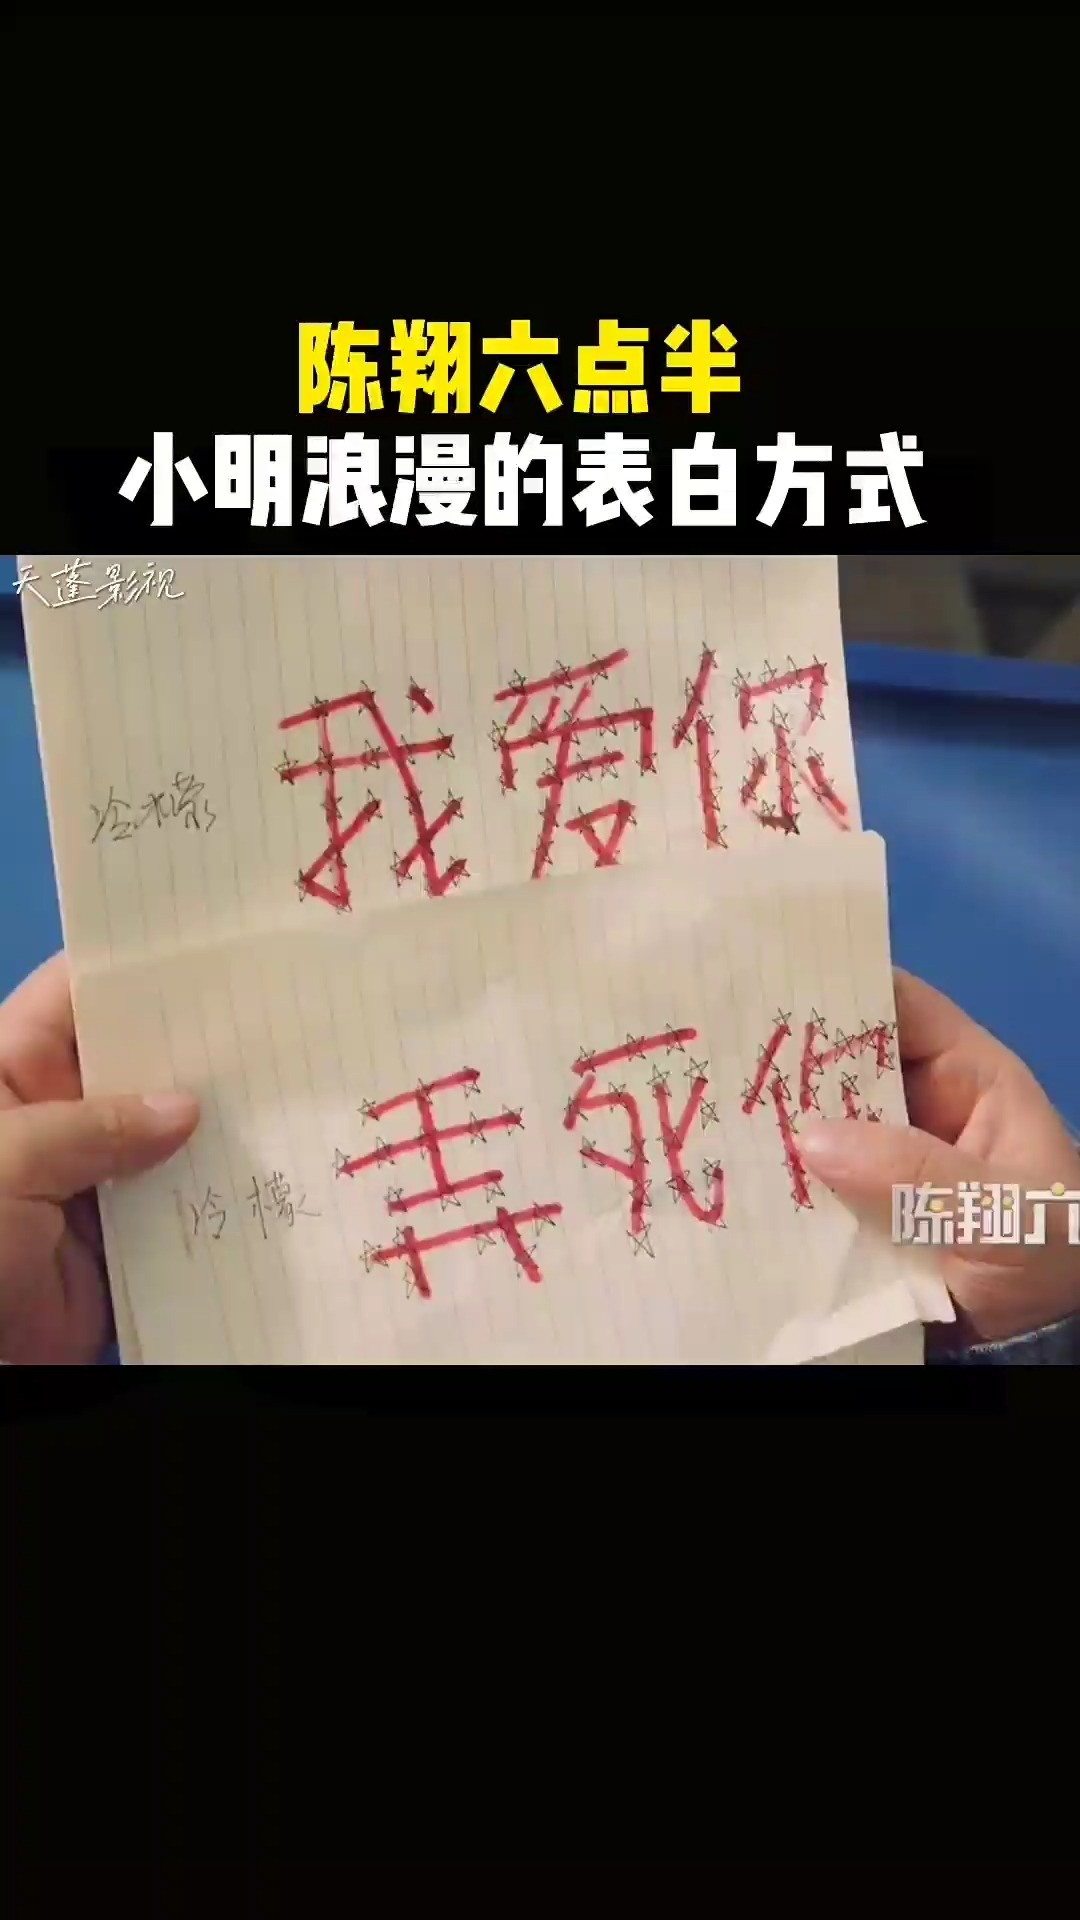 陈翔六点半
小明浪漫的表白方式
天蓬影视
我爱你
冷檬
弄死你
冷檬
陈翔六